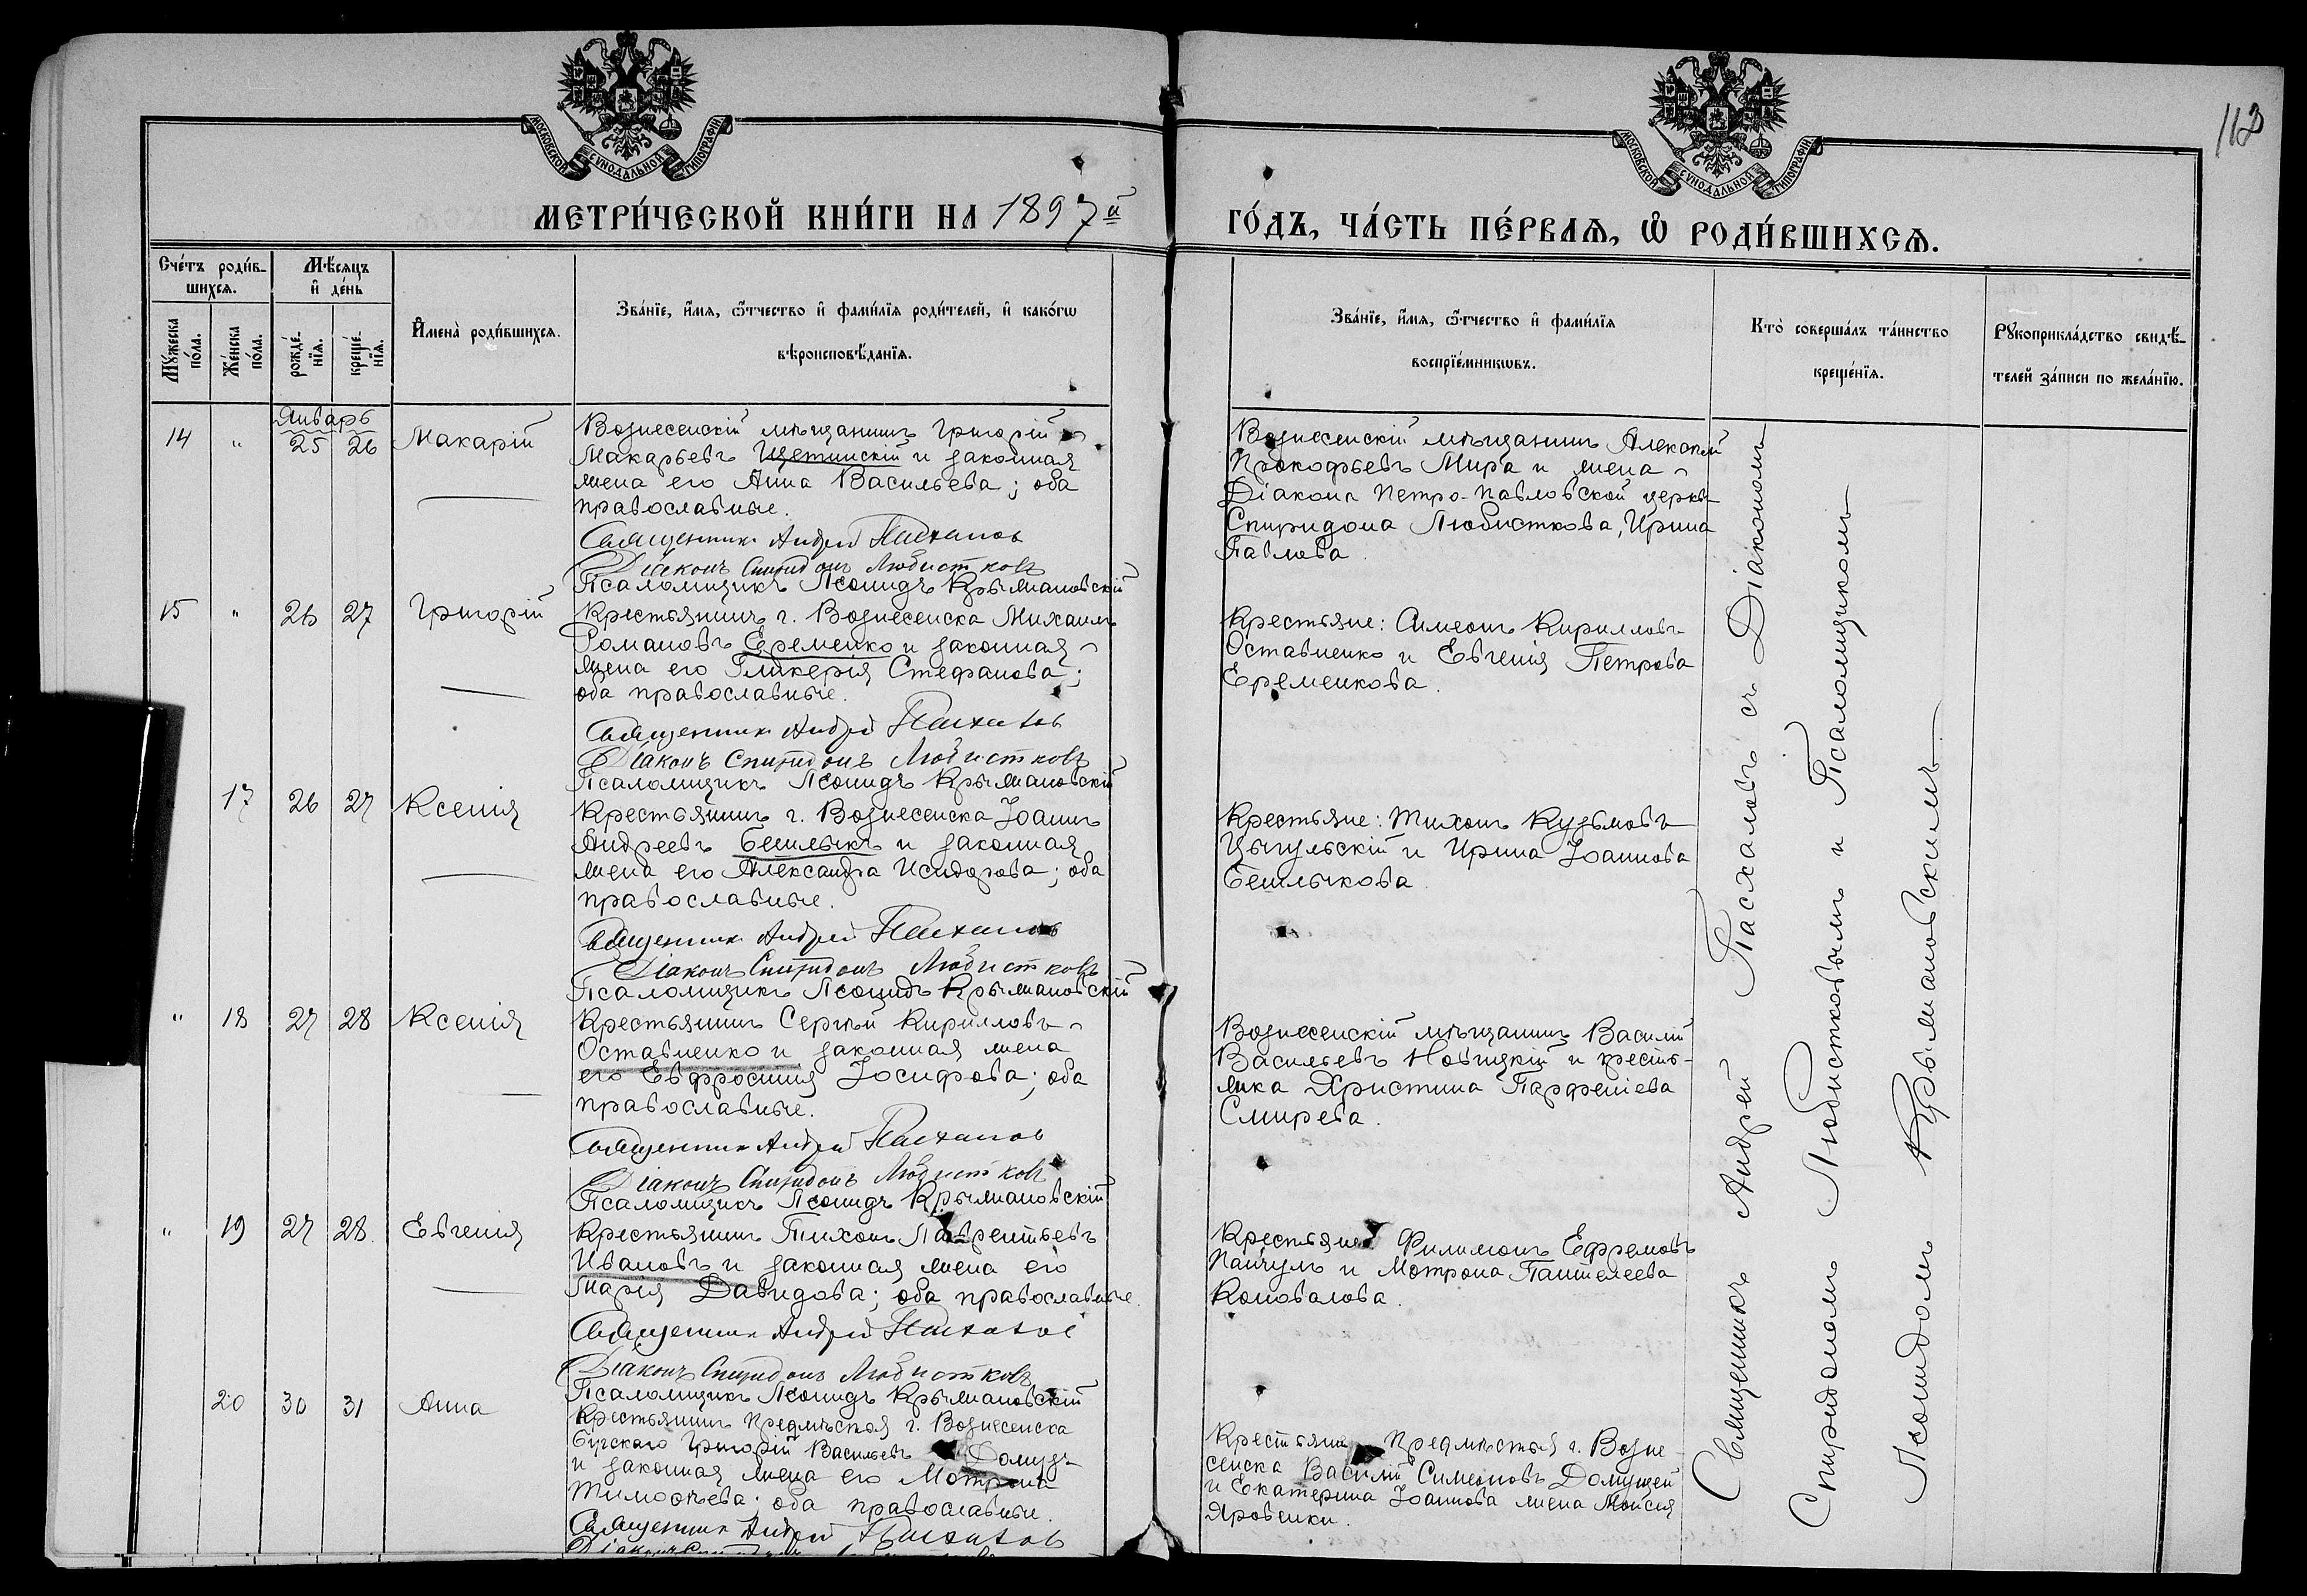 МОСКОВСКОЙ СѴНОДАЛЬНОЙ ТИПОГРАФІИ
МОСКОВСКОЙ СѴНОДАЛЬНОЙ ТИПОГРАФІИ
МЕТРИ́ЧЕСКОЙ КНИ́ГИ НА 1897й
ГО́ДЪ, ЧА́СТЬ ПЕ́РВАѦ, Ѡ҆ РОДИ́ВШИХСѦ.
Сче́тъ роди́в-
шихсѧ.
Мѣ́сѧцъ
и҆ де́нь
Мꙋ́жеска по́ла.
Же́нска по́ла.
рожде́-нїѧ.
креще́-нїѧ.
И҆мена̀ роди́вшихсѧ.
Зва́нїе, и҆́мѧ, ѻ҆́тчество и҆ фами́лїѧ роди́телей, и҆ како́гѡ
вѣроисповѣ́данїѧ.
Зва́нїе, и҆́мѧ, ѻ҆́тчество и҆ фами́лїѧ
воспрїе́мникѡвъ.
Кто̀ соверша́лъ та́инство
креще́нїѧ.
Рꙋкоприкла́дство свидѣ́-
телей за́писи по жела́нїю.
Январь
14 " 25 26 Макарій
Вознесенскій мѣщанинъ Григорій
Макарьевъ Щетинскій и законная
жена его Анна Васильева; оба
православные.
Священникъ Андрей Пасхаловъ
Діаконъ Спиридонъ Любистковъ
Псаломщикъ Леонидъ Крыжановскій
Вознесенскій мѣщанинъ Алексѣй
Прокофьевъ Мира и жена
Діакона Петро-Павловской церкв
Спиридона Любисткова, Ирина
Павлова.
15 " 26 27 Григорій
Крестьянинъ г. Вознесенска Михаилъ
Романовъ Еременко и законная
жена его Гликерія Стефанова;
оба православные.
Священникъ Андрей Пасхаловъ
Діаконъ Спиридонъ Любистковъ
Псаломщикъ Леонидъ Крыжановскій
Крестьяне: Симеонъ Кирилловъ
Оставненко и Евгенія Петрова
Еременкова.
17 26 27 Ксенія
Крестьянинъ г. Вознесенска Іоаннъ
Андреевъ Бешлыкъ и законная
жена его Александра Исидорова; оба
православные.
Священникъ Андрей Пасхаловъ
Діаконъ Спиридонъ Любистковъ
Псаломщикъ Леонидъ Крыжановскій
Крестьяне: Тихонъ Кузьмовъ
Цыгульскій и Ирина Іоаннова
Бешлыкова.
" 18 27 28 Ксенія
Крестьянинъ Сергѣй Кирилловъ
Оставненко и законная жена
его Евфросинія Іосифова; оба
православные.
Священникъ Андрей Пасхаловъ
Діаконъ Спиридонъ Любистковъ
Псаломщикъ Леонидъ Крыжановскій
Вознесенскій мѣщанинъ Василій
Васильевъ Новицкій и кресть-
янка Христина Парфеніева
Смирева.
" 19 27 28. Евгенія
Крестьянинъ Тихонъ Лаврентьевъ
Ивановъ и законная жена его
Марія Давидова; оба православные.
Священникъ Андрей Пасхаловъ
Діаконъ Спиридонъ Любистковъ
Псаломщикъ Леонидъ Крыжановскій
Крестьяне: Филимонъ Ефремовъ
и Мотрона Пантелеева
Коновалова.
20 30 31 Анна
Крестьянинъ предмѣстья г. Вознесенска
Бугскаго Григорій Васильевъ
и законная жена его Мотрона
Тимофеева; оба православные.
Священникъ Андрей Пасхаловъ
Крестьяне предмѣстья г. Возне-
сенска Василій Симеоновъ
и Екатерина Іоаннова жена Моисея
Яровенки.
Священникъ Андрей Пасхаловъ съ Діакономъ
Спиридономъ Любистковымъ и Псаломщикомъ
Леонидомъ Крыжановскимъ